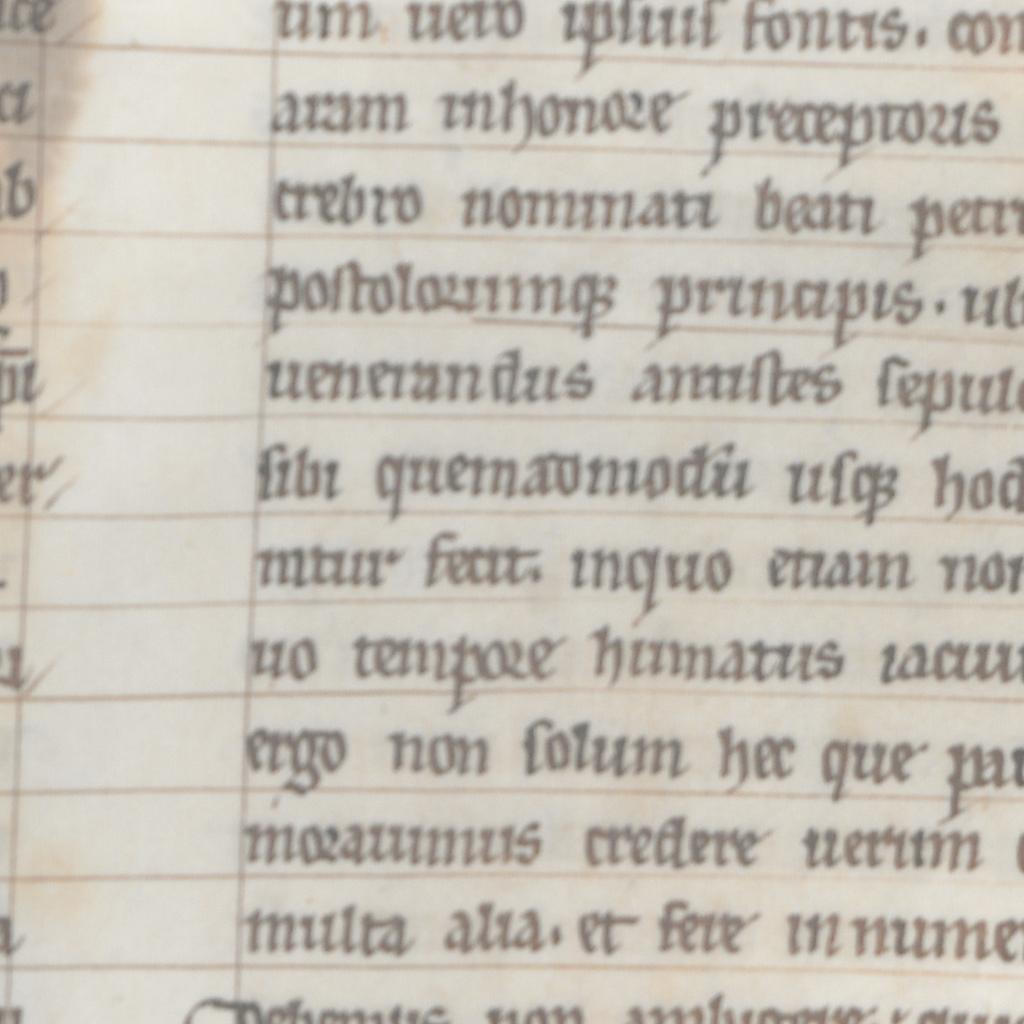 um uero ipsius fontis. con
aram inhonore preceptoris
crebro nominati beati petri
postolorumq; principis. ub
uenerandus antistes sepulc
sibi quemadmodū usq; hod
ntur fecit. inquo etiam non
uo tempore humatus iacuit
ergo non solum hec que pau
morauimus credere uerum
multa alia. et fere innumer
Debemus non